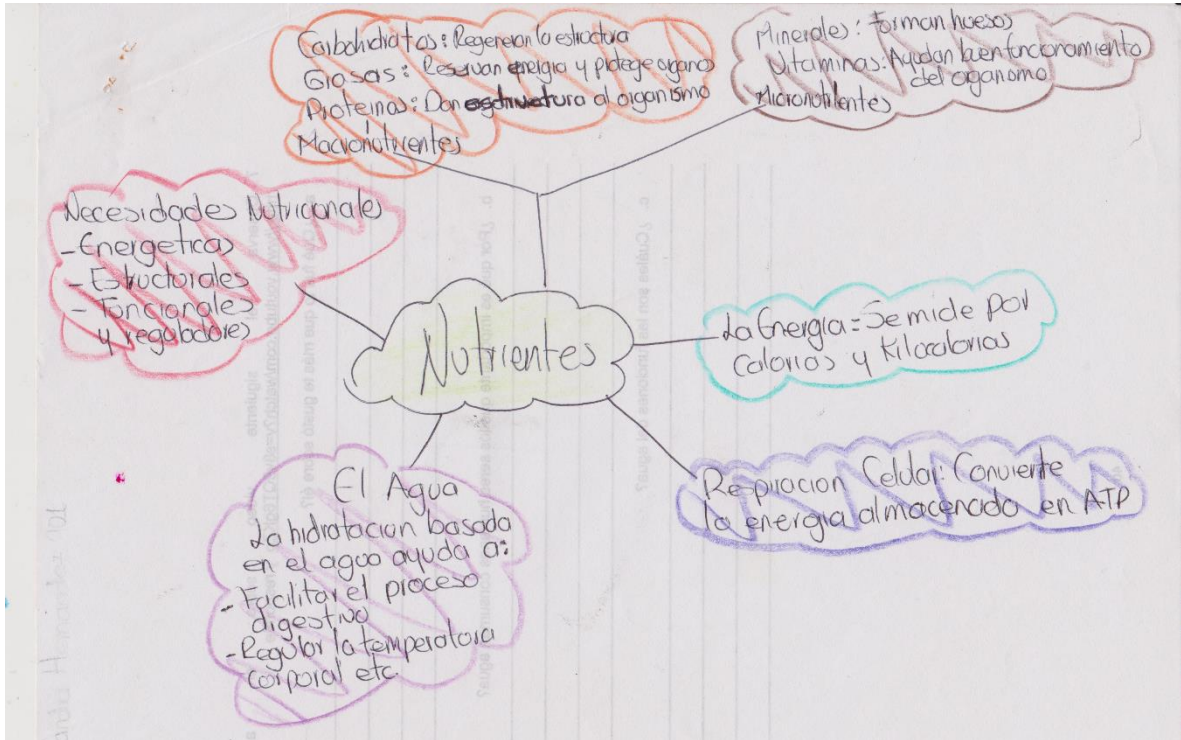 Carbohidratos: Regeneran la estructura
Grasas: Reservan energia y protege organos
Proteinas: Dan estructura al organismo
Macronutrientes
Minerales: Forman huesos
Vitaminas: Ayudan buen funcionamiento
del organismo
Micronutrientes
Necesidades Nutricionales
- Energeticas
- Estructurales
- Funcionales
y regaladores
Nutrientes
La Energia = Se mide por
Calorias y Kilocalorias
Respiracion Celular: Conviente
la energia almacenada en ATP
El Agua
La hidratacion basada
en el agua ayuda a:
- Facilitar el proceso
digestivo
- Regular la temperatura
corporal etc.